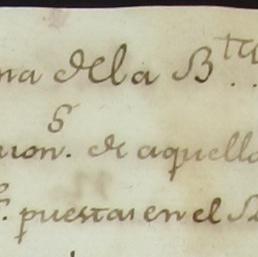 na de la B.ta
uon.s de aquello
puestas en el